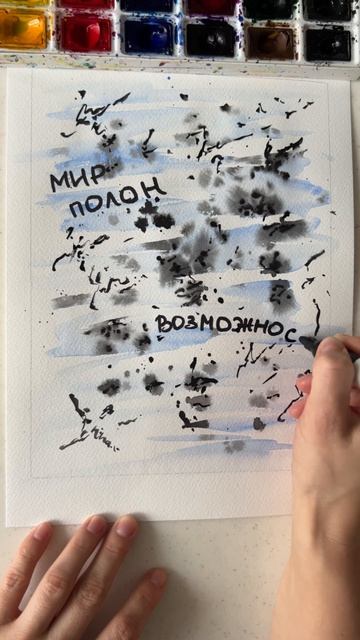 МИР
ПОЛОН
ВОЗМОЖНОС